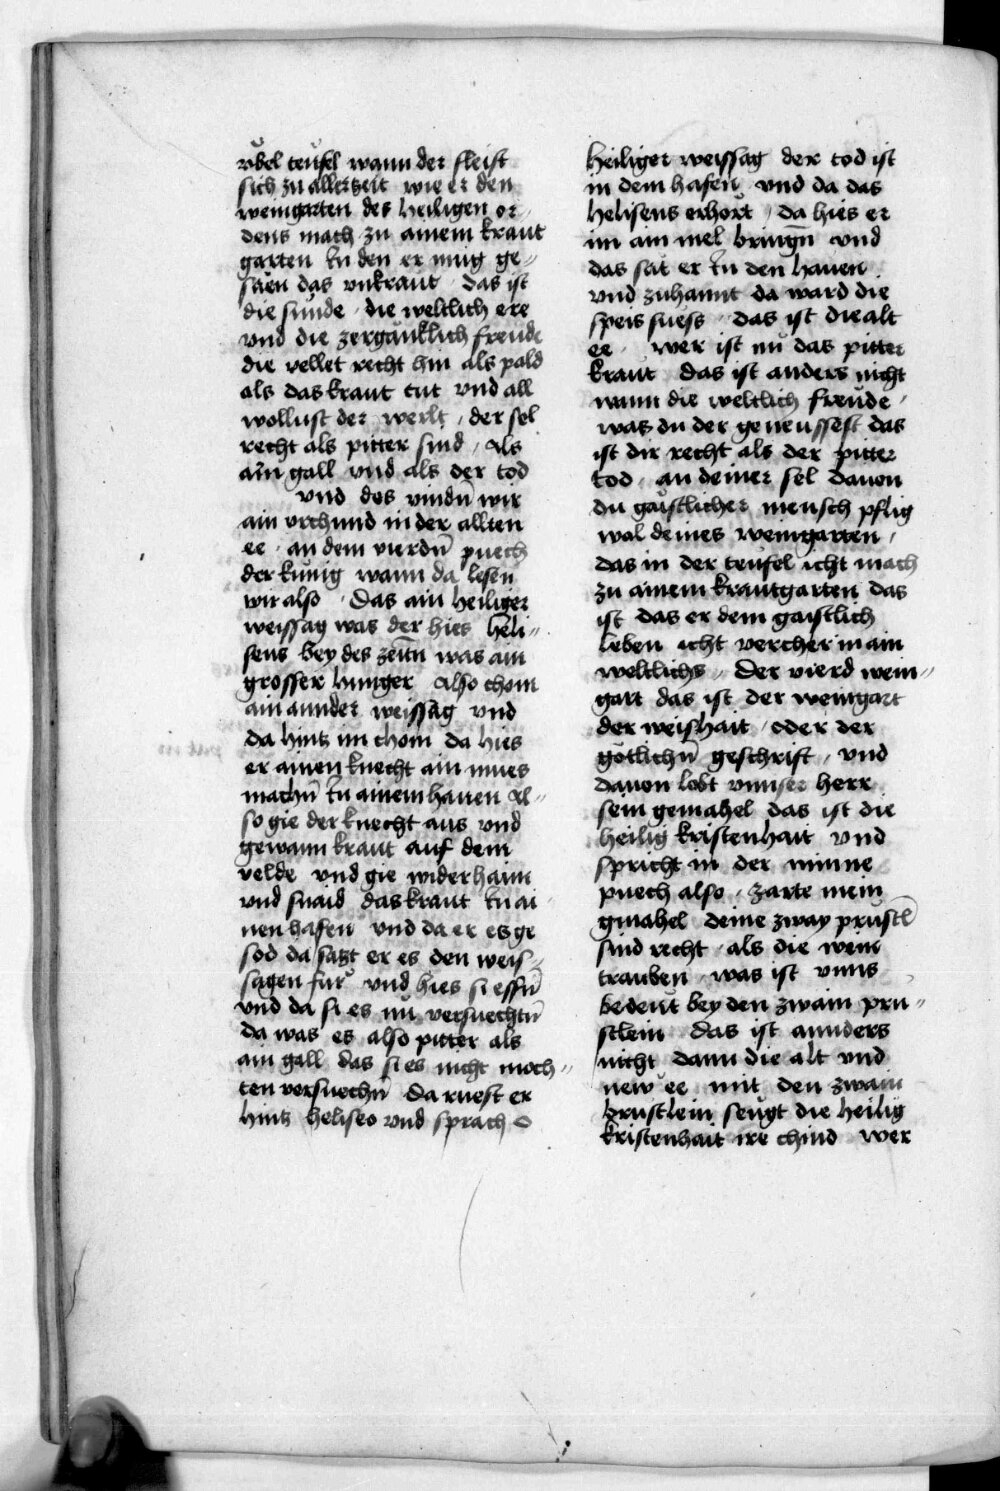 vbel teufel wann der fleist
sich zu allerzeit wie er den
weingarten des heiligen or
dens mach zu ainem kraut
garten In den er mug ge〃
säen das vnkraut das ist
die sunde die weltlich ere
vnd die zergäncklich freude
die vellet recht hin als pald
als das kraut tut vnd all
wollust der werlt der sel
recht als pitter sind Als
ain gall vnd als der tod
vnd des vindn̄ wir
ain vrchund in der allten
ee an dem vierdn̄ puech
der kunig wann da lesen
wir also Das ain heiliger
weissag was der hies heli〃
seus bey des zeitn̄ was ain
grosser hunger Also chom
ain annder weissag vnd
da hintz im chom da hies
er ainen knecht ain mues
machn̄ In ainem hauen Al〃
so gie der knecht aus vnd
gewann kraut auf dem
velde vnd gie wider haim
vnd snaid das kraut In ai
nen hafen vnd da er es ge
sod da satzt er es den weis〃
sagen fur vnd hies si essn̄
vnd da si es nu versuechtn̄
da was es also pitter als
ain gall das si es nicht moch〃
ten versuechn̄ Da rueft er
hintz heliseo vnd sprach O
heiliger weissag der tod ist
in dem hafen vnd da das
heliseus erhort da hies er
im ain mel bringn̄ vnd
das sät er In den hauen
vnd zuhannt da ward die
speis suess das ist die alt
ee wer ist nu das pitter
kraut das ist anders nicht
wann die weltlich freude
was du der geneussest das
ist dir recht als der pitter
tod an deiner sel dauon
du gaistlicher mensch pflig
wol deines weingarten
das in der teufel icht mach
zu ainem krautgarten das
ist das er dem gaistlich
leben icht vercher in ain
weltlichs Der vierd wein〃
gart das ist der weingart
der weishait oder der
gotlichn̄ geschrift vnd
dauon lobt vnnser herr
sein gemahel das ist die
heilig kristenhait vnd
spricht in der minne
puech also zarte mein
gmahel deine zway prustl̄
sind recht als die wein
trauben was ist vnns
bedeut bey den zwain pru〃
stlein das ist annders
nicht dann die alt vnd
new ee mit den zwain
brustlein seugt die heilig
kristenhait ire chind wer